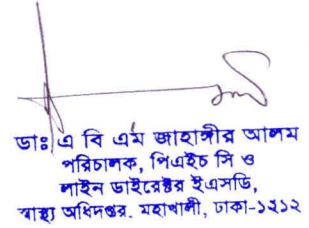 ডাঃ এ বি এম জাহাঙ্গীর আলম
পরিচালক, পিএইচ সি ও
লাইন ডাইরেক্টর ইএসডি,
স্বাস্থ্য অধিদপ্তর. মহাখালী, ঢাকা-১২১২